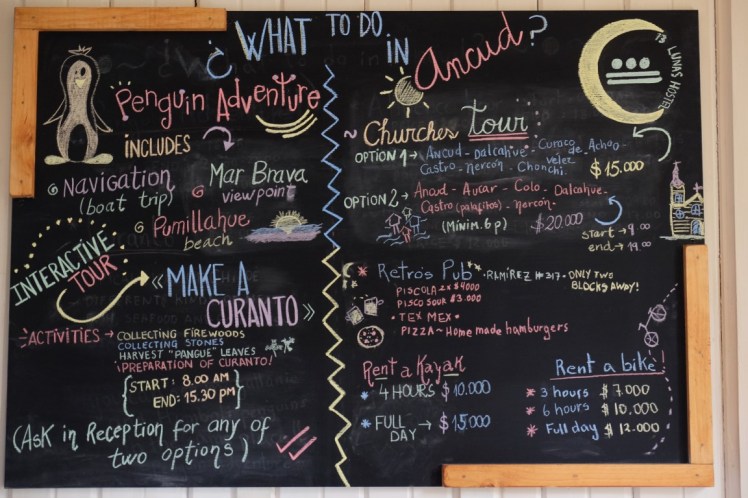 WHAT TO DO IN Ancud?
13 LUNAS HOSTEL
Penguin Adventure
INCLUDES
Navigation
(boat trip)
Mar Brava
viewpoint
Pumillahue
beach
INTERACTIVE
TOUR
«MAKE A
CURANTO»
ACTIVITIES → COLLECTING FIREWOODS
COLLECTING STONES
HARVEST "PANGUE" LEAVES
PREPARATION OF CURANTO!
START: 8.00 AM
END: 15.30 PM
(Ask in Reception for any of
two options)
~ Churches tour:
OPTION 1 → Ancud - Dalcahue - Curaco de Velez - Achao -
Castro - Nercón - Chonchi.
$15.000
OPTION 2 → Ancud - Aucar - Colo - Dalcahue -
Castro (palafitos) - Nercón.
(MINIM. 6 p)
$20.000
start → 9.00
end → 19.00
* Retro's Pub * RAMÍREZ #317 - ONLY TWO
BLOCKS AWAY!
PISCOLA 2x $4000
PISCO SOUR $3.000
• TEX MEX •
• PIZZA ~ Home made hamburgers
Rent a Kayak
* 4 HOURS $10.000
* FULL
DAY → $15.000
Rent a bike!
* 3 hours $7.000
* 6 hours $10.000
* Full day $12.000